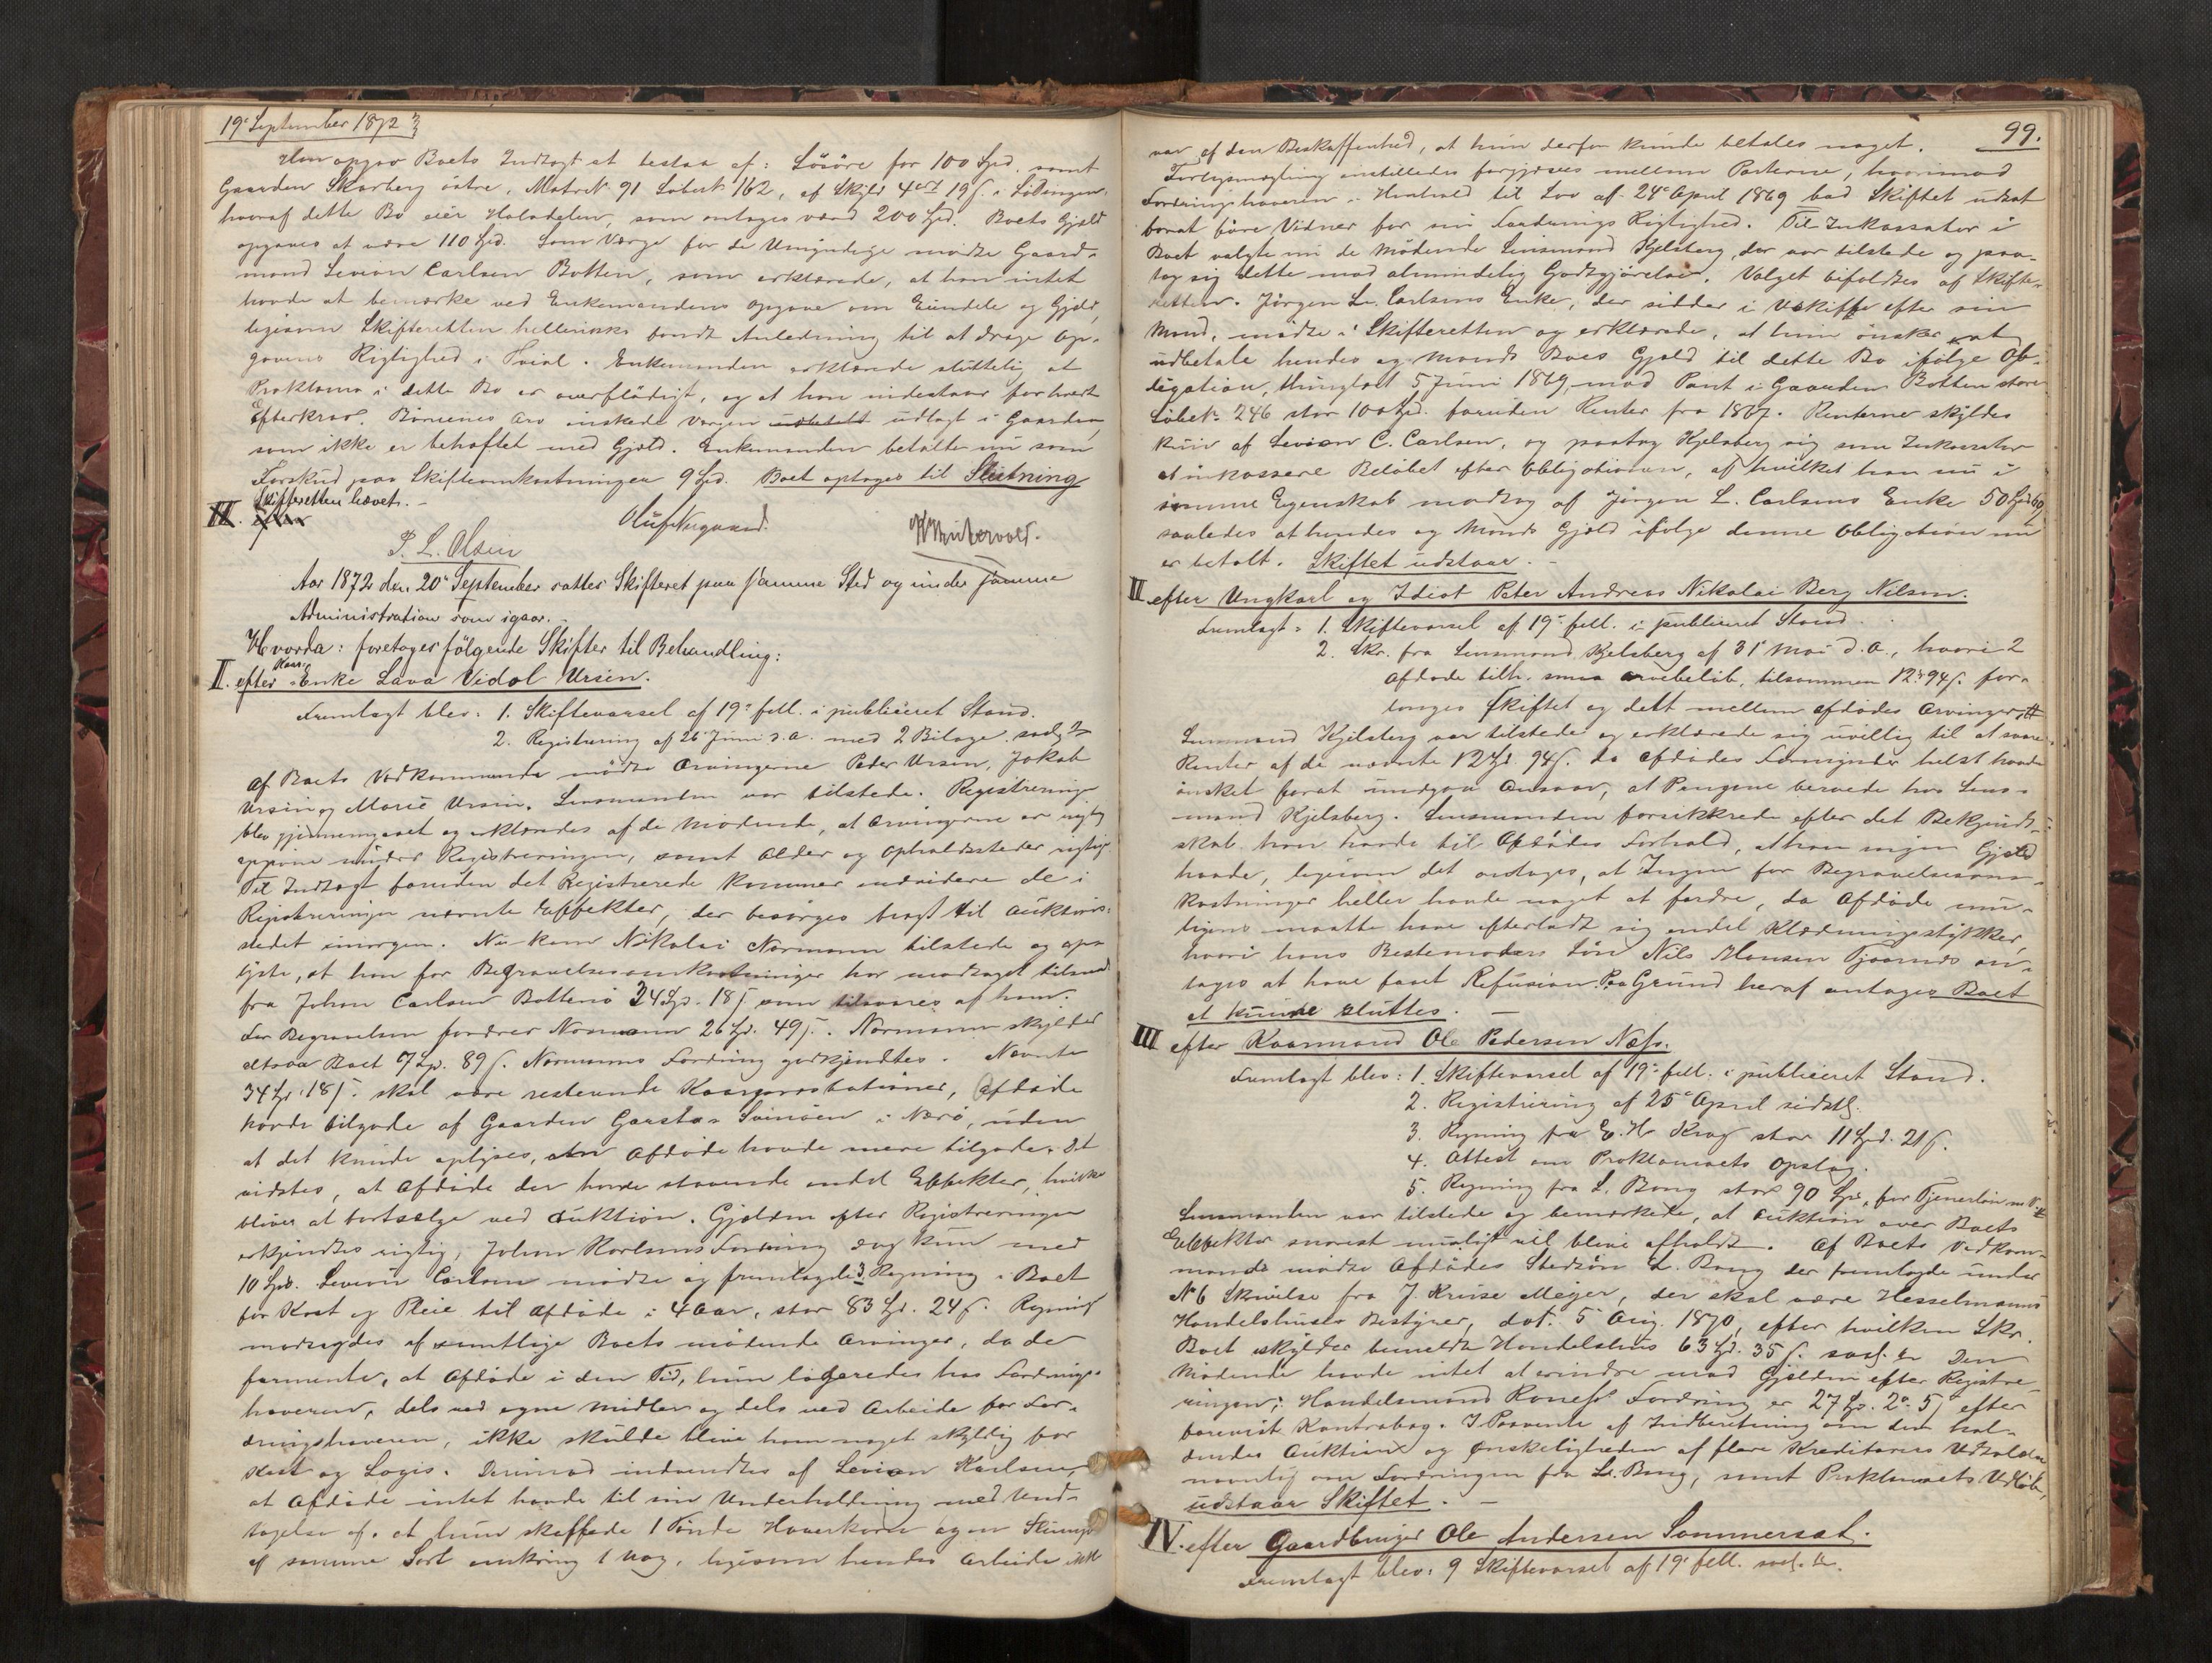 19de September 1872
Han opgav Boets Indtægt at bestaa af: Lösöre for 100 Spd. samt
Gaarden Skarberg östre, Matr. N. 91 Löbe N. 162, af Skyld 4 19 ß. i Lödingen,
hvoraf dette Bo eier Halvdelen, som antages værd 200 Spd. Boets Gjæld
opgaves at være 110 Spd. Som Værge for de Umyndige mødte Gaard-
mand Levion Carlsen Botten, som erklærede, at han intet
havde at bemærke ved Enkemandens Opgave om Eiendele og Gjæld,
ligesom Skifteretten hellerikke fandt Anledning til at drage Op-
gavens Rigtighed i Tvivl. Enkemanden erklærede sluttelig at
Proklama i dette Bo er overflødigt, og at han indestaar for hvert
Efterkrav. Børnenes Arv ønskede Værgen udbetalt udlagt i Gaarden,
som ikke er behæftet med Gjæld. Enkemanden betalte nu som
Forskud paa Skifteomkostningen 9 Spd. Boet optages til Slutning
Skifteretten hævet. -
III. efter
P. L. Olsen
Aar 1872 den 20de September sattes Skifteret paa samme Sted og under samme
Administration som igaar. -
Hvorda: foretoges følgende Skifter til Behandling:
I. efter Kaar: Enke Lava Vidol Ursin.
Fremlagt blev: 1. Skiftevarsel af 19de fell. i publiceret Stand.
2. Registrering af 26 Juni d. a. med 2 Bilage.
Af Boets Vedkommende mødte Arvingerne Peder Ursin, Jakob
Ursin og Marie Ursin. Lensmanden var tilstede. Registrering
blev gjennemgaaet og erklæredes af de Mødende, at Arvingerne er rigtig
opgivne under Registreringen, samt Alder og Opholdssteder rigtig.
Til Indtægt foruden det Registrerede kommer endvidere de i
Registreringen nævnte Effekter, der besørges bragt til Auktions-
stedet imorgen. Nu kom Nikolai Normann tilstede og op-
lyste, at han for Begravelsesomkostninger har modtaget tilsendt
fra Johan Carlsen Botten 34 Spd. 18 ß som tilsvares af ham.
For Begravelsen fordrer Normann 26 Spd. 49 ß. Normann skylder
altsaa Boet 7 Spd. 89 ß. Normanns Fordring godkjendtes. Nævnte
34 Spd. 18 ß. skal være resterende Kaarprestationer, Afdøde
havde tilgode af Gaarden Garstad Svinöen i Nærö, uden
at det kunde oplyses, om Afdøde havde mere tilgode. Det
vidstes, at Afdøde der havde staaende endel Effekter, hvilke
bliver at bortsælge ved Auktion. Gjælden efter Registreringen
erkjendtes rigtig, Johan Karlsens Fordring dog kun med
10 Spd. Levion Carlsen mødte og fremlagde 3 Regning i Boet
for Kost og Pleie til Afdøde i 4 Aar, stor 83 Spd. 24 ß. Regning
modsagdes af samtlige Boets mødende Arvinger, da de
formente, at Afdøde i den Tid, hun logeredes hos Fordrings-
haveren, dels ved egne Midler og dels ved Arbeide for For-
dringshaveren, ikke skulde blive ham noget skyldig for
Kost og Logis. Derimod indvendtes af Levion Karlsen,
at Afdøde intet havde til sin Underholdning med Und-
tagelse af, at hun skaffede 1 Tønde Haverkorn og en Slump
af samme Sort omkring 1 Vog, ligesom hendes Arbeide ikke
99.
var af den Beskaffenhed, at hun derfor kunde betales noget.
Forligsmægling anstilledes forgjæves mellem Parterne, hvorimod
Fordringshaveren i Henhold til Lov af 24de April 1869 bad Skiftet udsat
forat føre Vidner for sin Fordrings Rigtighed. Til Inkassator i
Boet valgte nu de Mødende Lensmand Kjelsberg, der var tilstede og paa-
tog sig dette mod almindelig Godtgjørelse. Valget bifaldtes af Skifte-
retten. Jørgen L. Carlsens Enke, der sidder i Uskifte efter sin
Mand, mødte i Skifteretten og erklærede, at hun ønsker at
udbetale hendes og Mands Boes Gjæld til dette Bo ifølge Ob-
ligation, thinglæst 5 Juni 1869, mod Pant i Gaarden Botten store
Løbe N. 246 stor 100 Spd. foruden Renter fra 1867. Renterne skyldes
kun af Levion C. Carlsen, og paatog Kjelsberg sig som Inkassator
at inkassere Beløbet efter Obligationen, af hvilket han nu i
samme Egenskab modtog af Jørgen L. Carlsens Enke 50 Spd.
saaledes at hendes og Mands Gjæld ifølge denne Obligation nu
er betalt. Skiftet udstaar. -
II efter Ungkarl og Idiot Peter Andreas Nikolai Berg Nilsen.
Fremlagt: 1. Skiftevarsel af 19de fell. i publiceret Stand.
2. Skr. fra Lensmand Kjelsberg af 31 Mai d. a., hvori 2
Afdøde tilh. smaa Arvebeløb, tilsammen 12 94 ß. for-
langes Skiftet og delt mellem Afdødes Arvinger
Lensmand Kjelsberg var tilstede og erklærede sig uvillig til at svare
Renter af de nævnte 12 Spd. 94 ß. da Afdødes Formynder helst havde
ønsket forat undgaa Ansvar, at Pengene beroede hos Lens-
mand Kjelsberg. Lensmanden forsikkrede efter det Bekjendt-
skab han havde til Afdødes Forhold, at han ingen Gjæld
havde, ligesom det antages, at Ingen for Begravelsesom-
kostninger heller havde noget at fordre, da Afdøde rime-
ligvis maatte have efterladt sig endel Klædningsstykker,
hvori hans Bestemoders Søn Nils Monsen Tjærnes an-
tages at have faaet Refusion. Paa Grund heraf antages Boet
at kunne sluttes. -
III efter Kaarmand Ole Pedersen Næss.
Fremlagt blev: 1. Skiftevarsel af 19de fell. i publiceret Stand.
2. Registrering af 25de April sidstl.
3. Regning fra E. H. Krog stor 11 Spd. 21 ß.
4. Attest om Proklamaets Opslag.
5. Regning fra L. Bong stor 90 Spd. for Tjenerløn
Lensmanden var tilstede og bemærkede, at Auktion over Boets
Effekter snarest muligt vil blive afholdt. Af Boets Vedkom-
mende mødte Afdødes Stedsøn L. Bong der fremlagde under
N. 6 Skrivelse fra J. Kruse Meyer, der skal være Hesselmanns
Handelshuses Bestyrer, dat. 5 Aug. 1870, efter hvilken Skr.
Boet skylder bemeldte Handelshus 63 Spd. 35 ß. Den
Mødende havde intet at erindre mod Gjælden efter Registre-
ringen; Handelsmand Fordring er 27 Spd. 2 5 ß efter
forevist Kontrabog. I Paavente af Indberetning om den hol-
dendes Auktion og Ønskeligheden af flere Kreditorers Udtalelse
navnlig om Fordringen fra L. Bong, samt Proklamaets Udløb,
udstaar Skiftet. -
IV. efter Gaardbruger Ole Andersen Sommersæt.
Fremlagt blev: 9 Skiftevarsel af 19de fell.